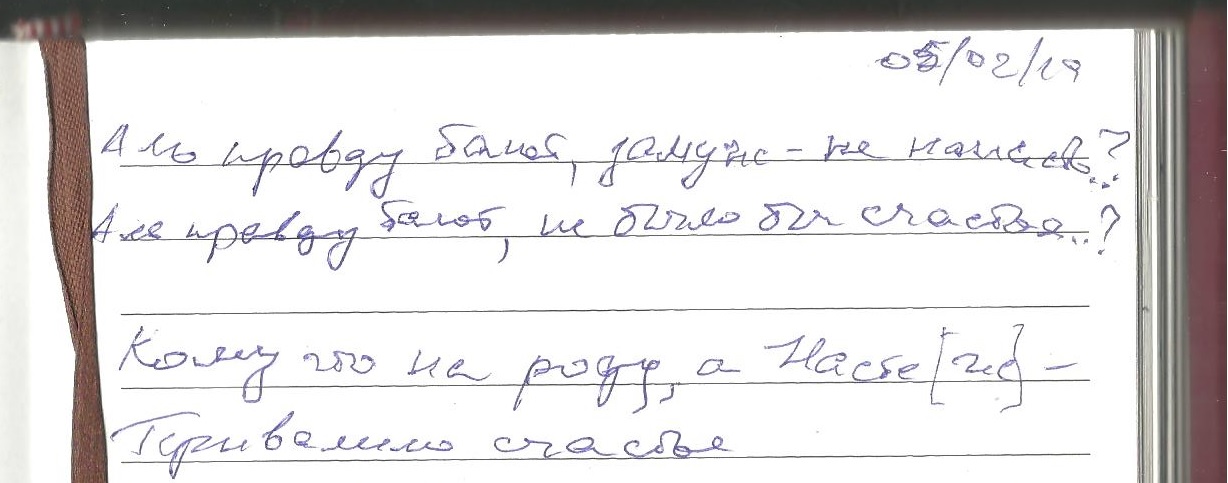 05/02/19
Аль правду бают, замуж - не напасть..?
Аль правду бают, не было бы счастья..?
Кому что на роду, а Насте [же] -
Привалило счастье